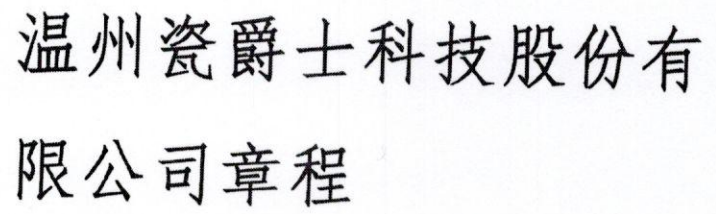 温州瓷爵士科技股份有
限公司章程